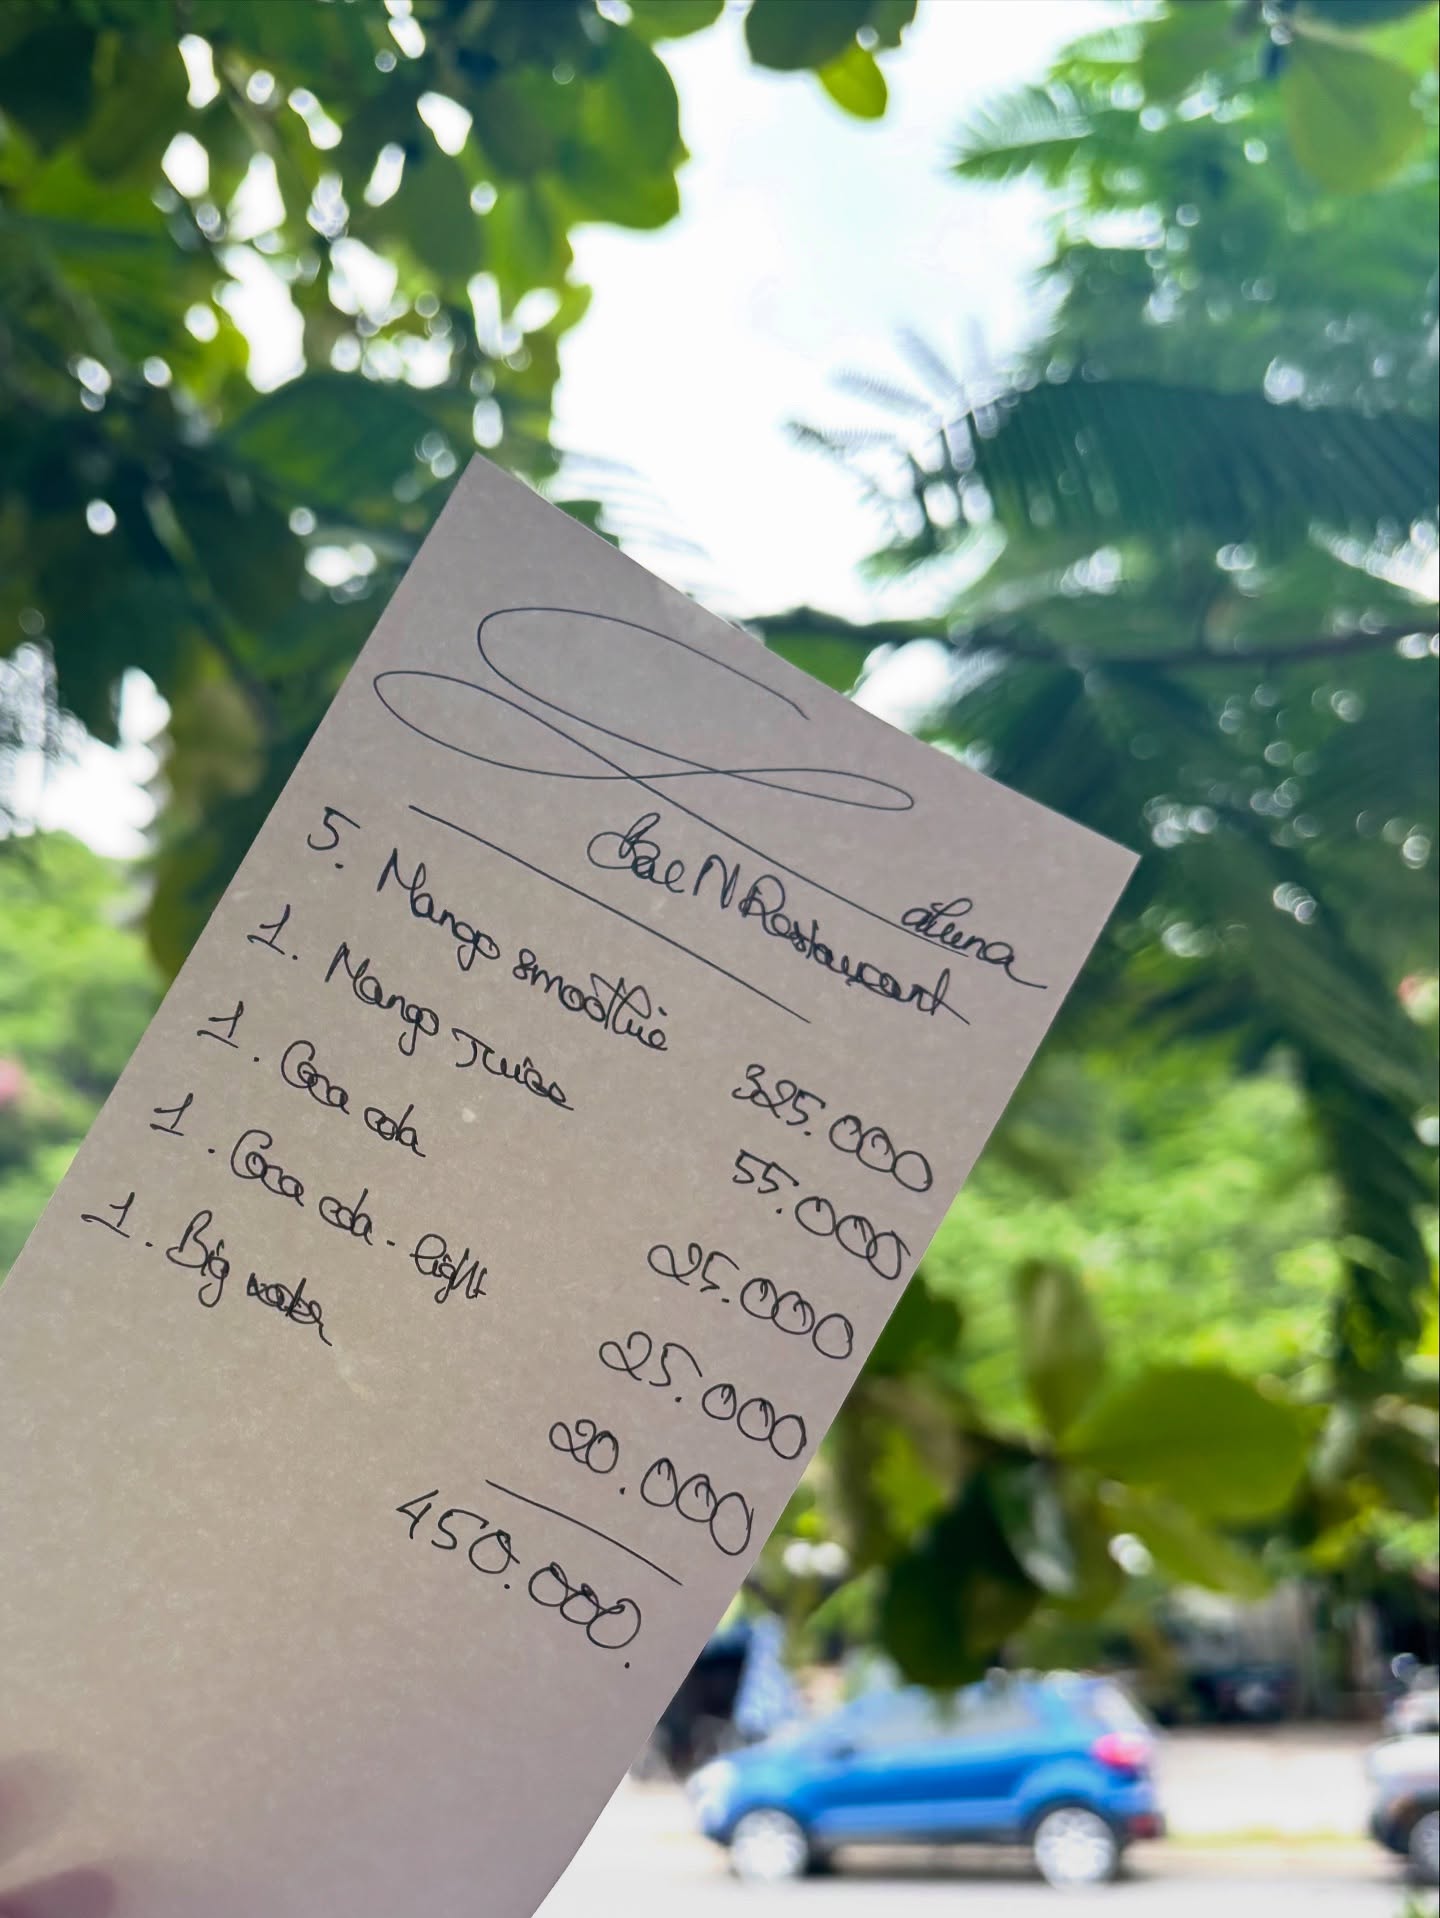 Bae N Restaurant
5. Mango smoothie 325.000
1. Mango Juice 55.000
1. Coca cola 25.000
1. Coca cola - light 25.000
1. Big water 20.000
450.000.